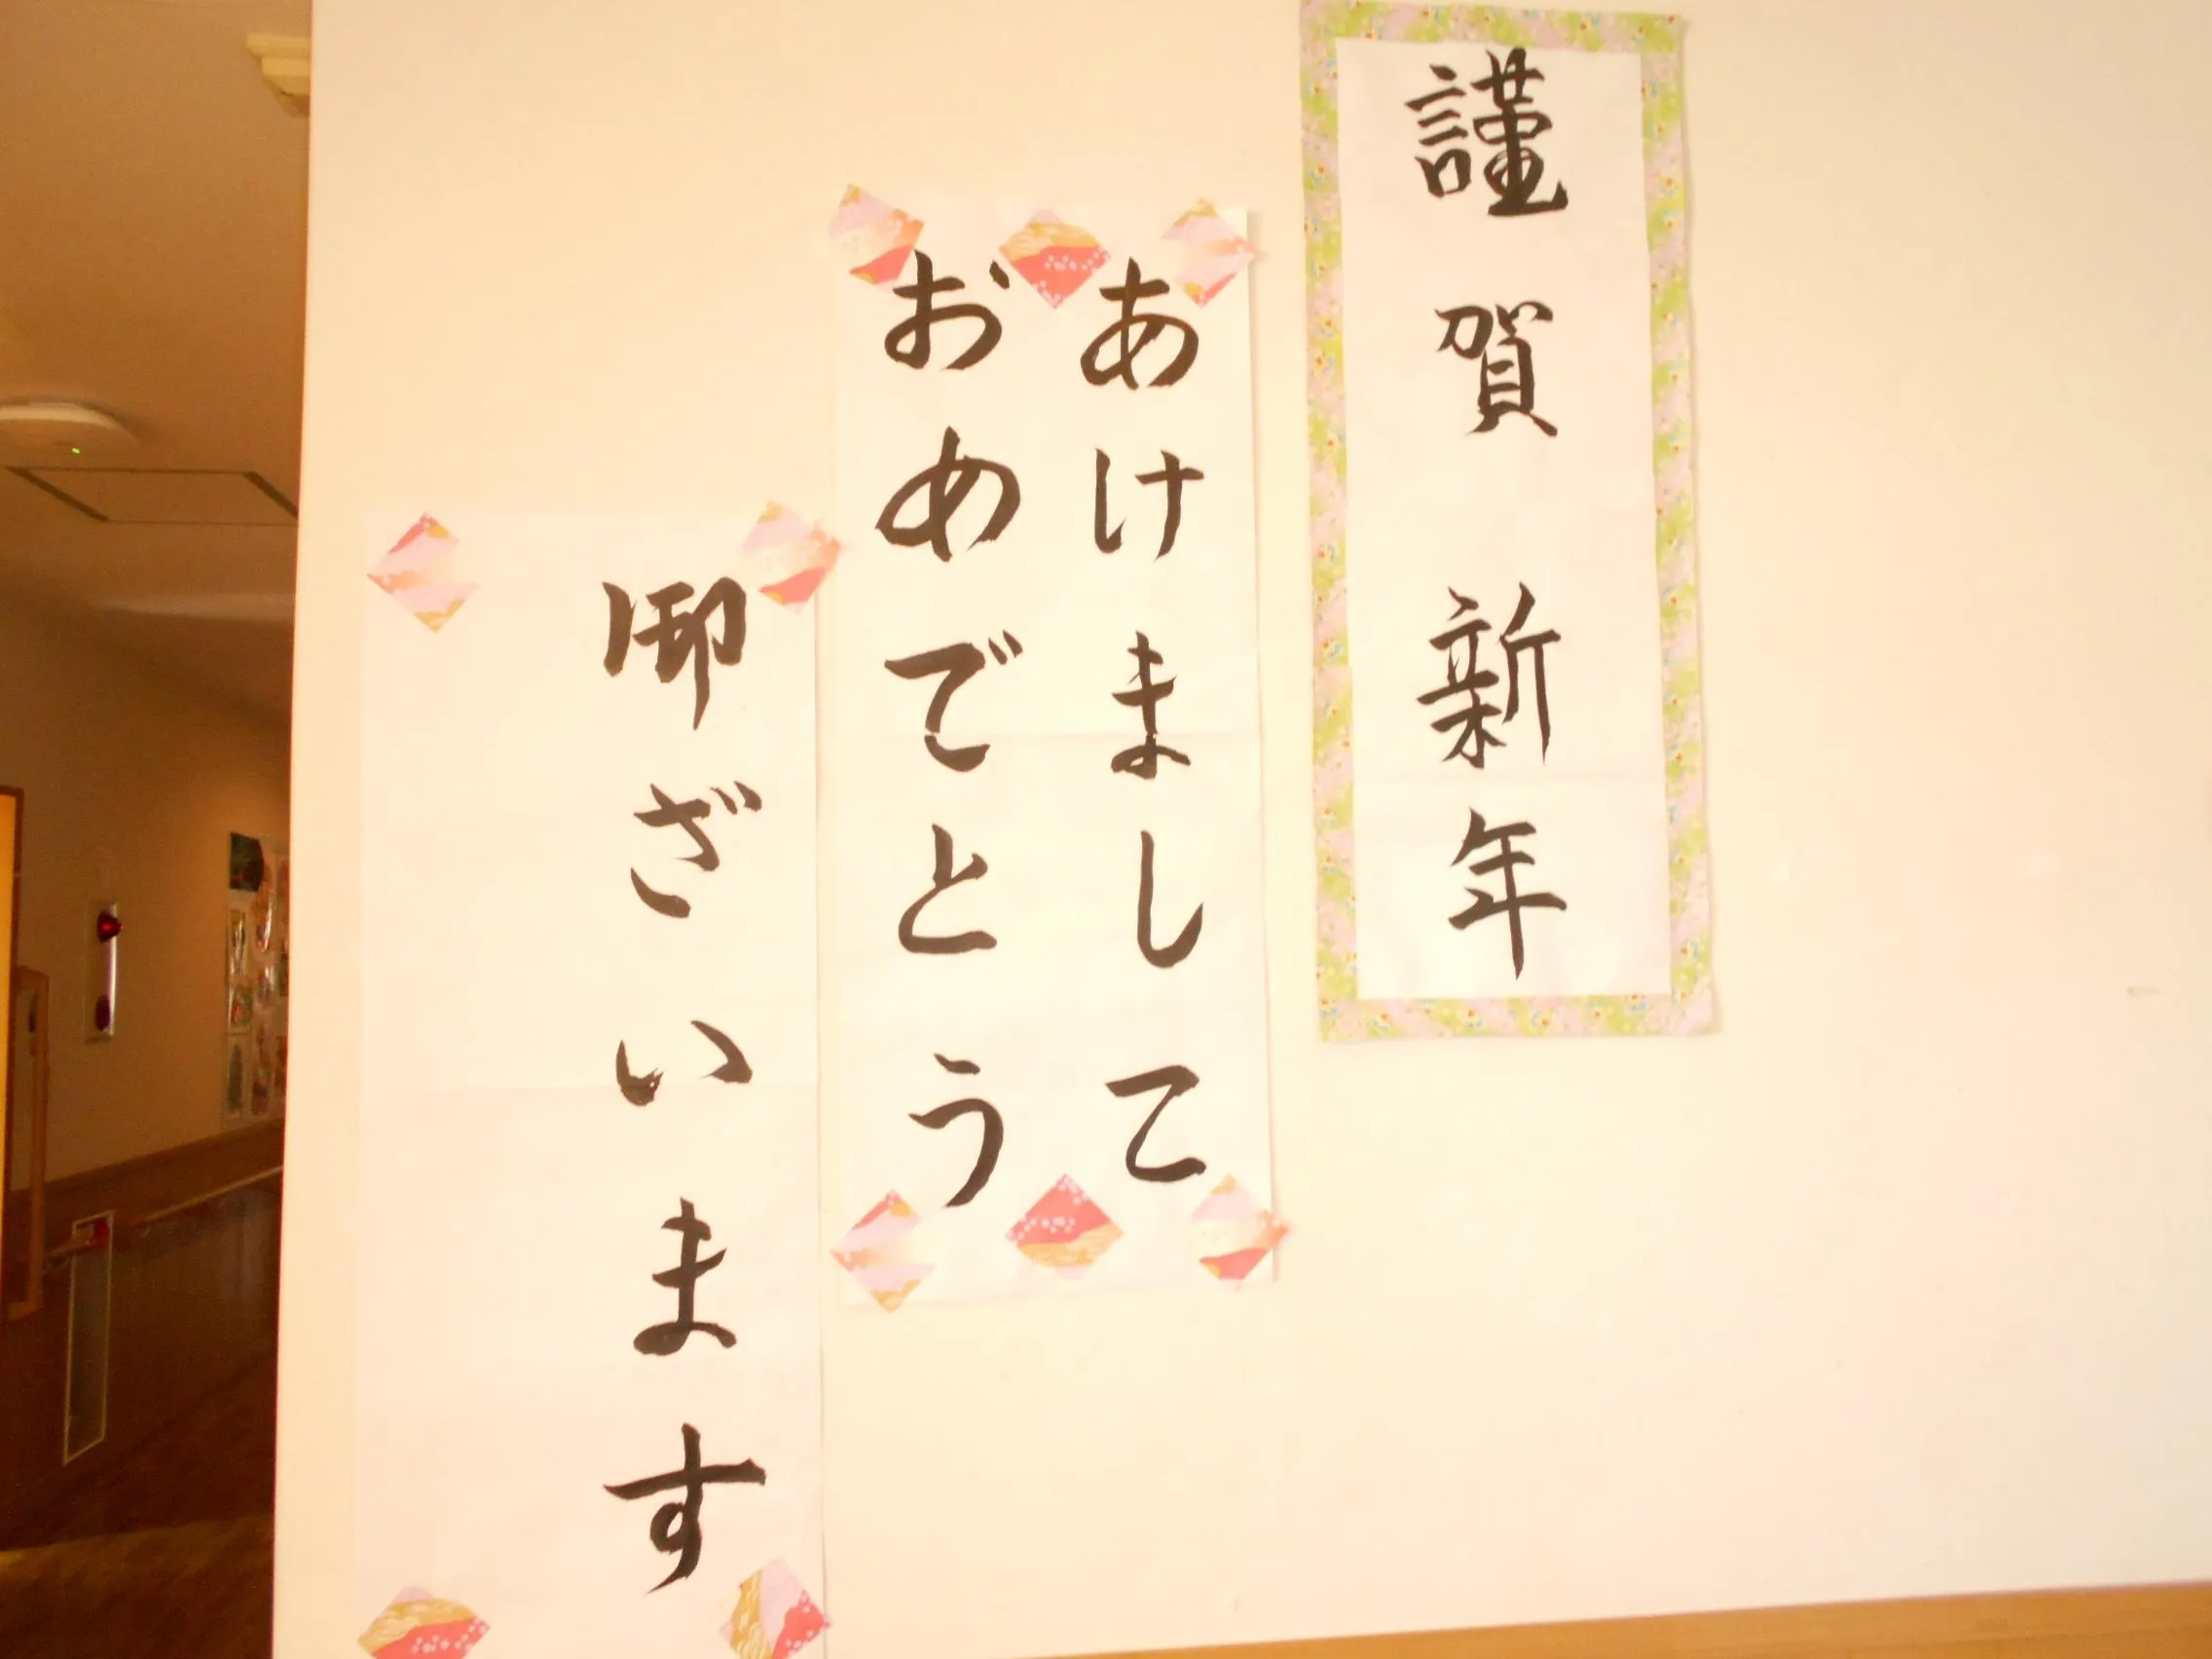 謹賀新年
あけまして
おめでとう
御ざいます